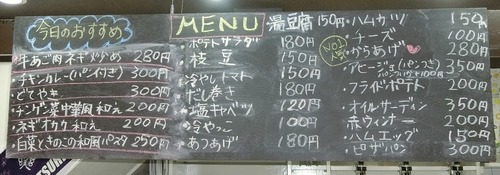 今日のおすすめ
・牛あご肉ネギ炒め 280円
・チキンカレー(パン付き) 300円
・どてやき 300円
・チンゲン菜中華風和え 200円
・ネギオカカ和え 200円
・白菜ときのこの和風パスタ 250円
MENU
・ポテトサラダ 180円
・枝豆 150円
・冷やしトマト 150円
・だし巻き 180円
・塩キャベツ 120円
・冷やっこ 100円
・あつあげ 180円
湯豆腐 150円
・ハムカツ 150
・チーズ 100円
NO1人気
・からあげ 280円
・アヒージョ(パン1つき) 350円
パン1つ+100円
・フライドポテト 200円
・オイルサーディン 350円
・赤ウィンナー 200円
・ハムエッグ 150円
・ピザパン 300円